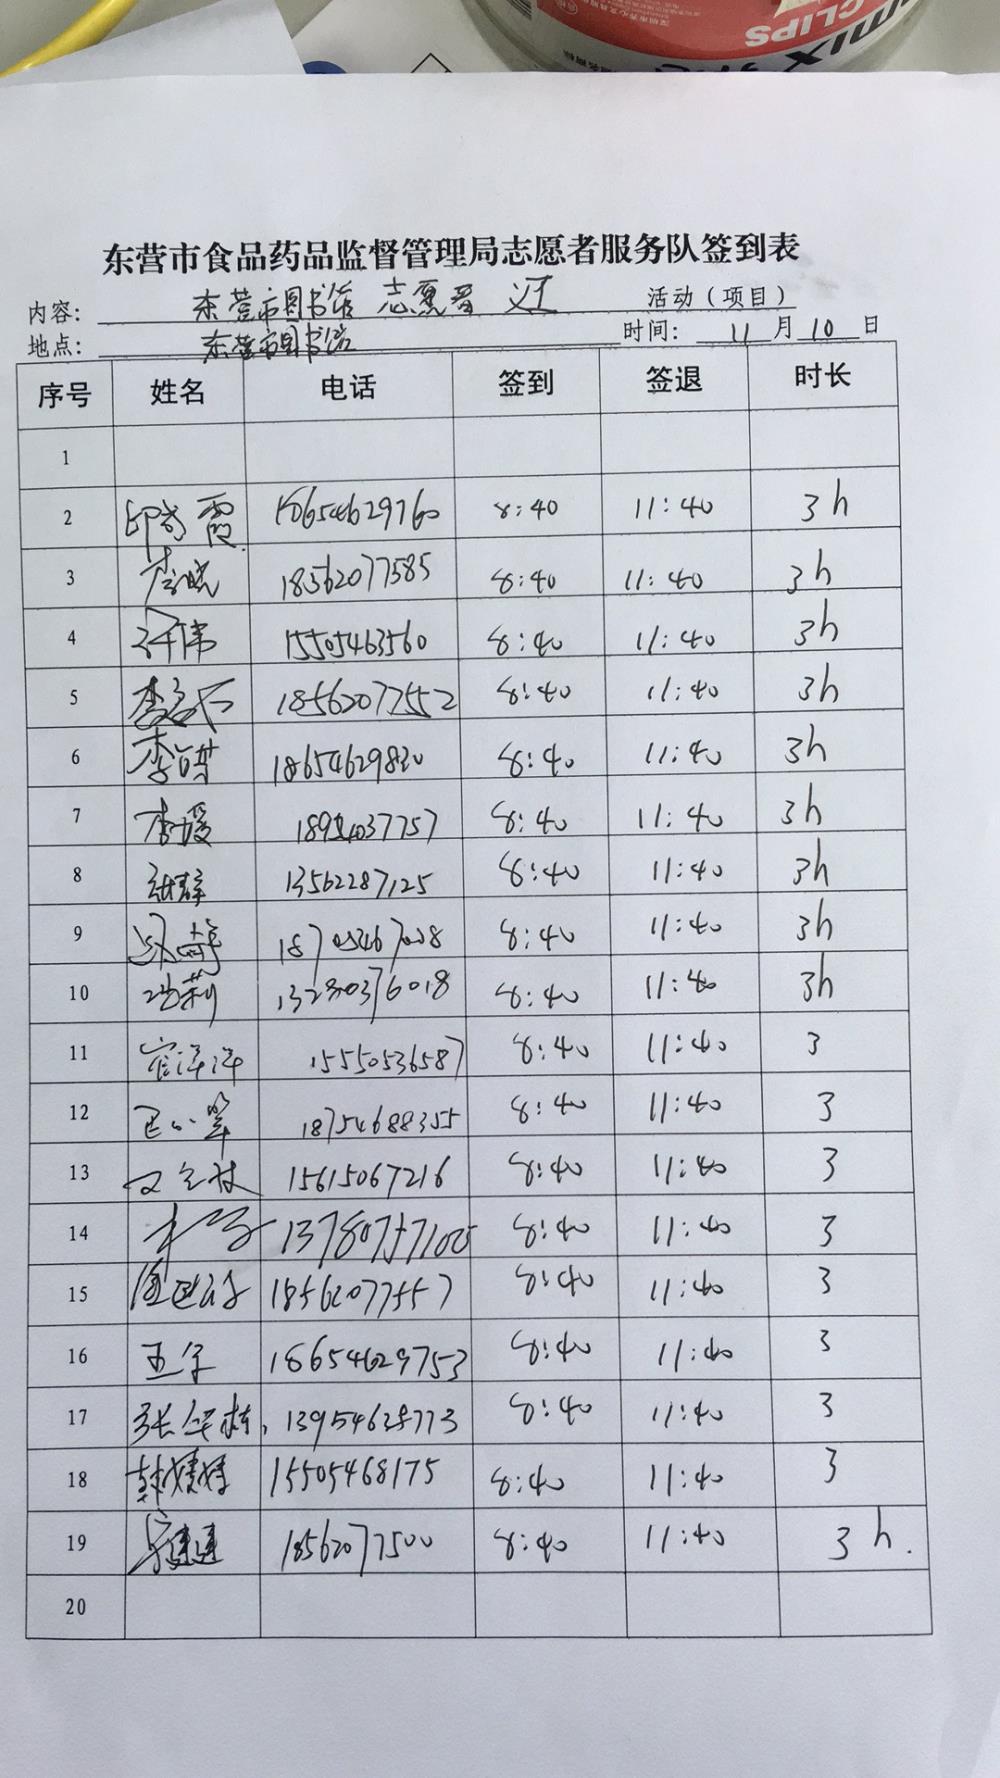 CLIPS
东营市食品药品监督管理局志愿者服务队签到表
内容: 东营市图书馆 志愿者 活动(项目)
地点: 东营市图书馆 时间: 11月10日
序号 姓名 电话 签到 签退 时长
1
2 霞 8:40 11:40 3h
3 李晓 18562077585 8:40 11:40 3h
4 伟 15505463560 8:40 11:40 3h
5 李 18562077552 8:40 11:40 3h
6 李 18654629820 8:40 11:40 3h
7 李媛 8:40 11:40 3h
8 13562287125 8:40 11:40 3h
9 8:40 11:40 3h
10 莉 13280376018 8:40 11:40 3h
11 崔洋洋 15550536587 8:40 11:40 3
12 小翠 18754688355 8:40 11:40 3
13 15615067216 8:40 11:40 3
14 8:40 11:40 3
15 18562077557 8:40 11:40 3
16 18654629753 8:40 11:40 3
17 张华栋 8:40 11:40 3
18 韩婧婧 15505468175 8:40 11:40 3
19 18562077500 8:40 11:40 3h.
20